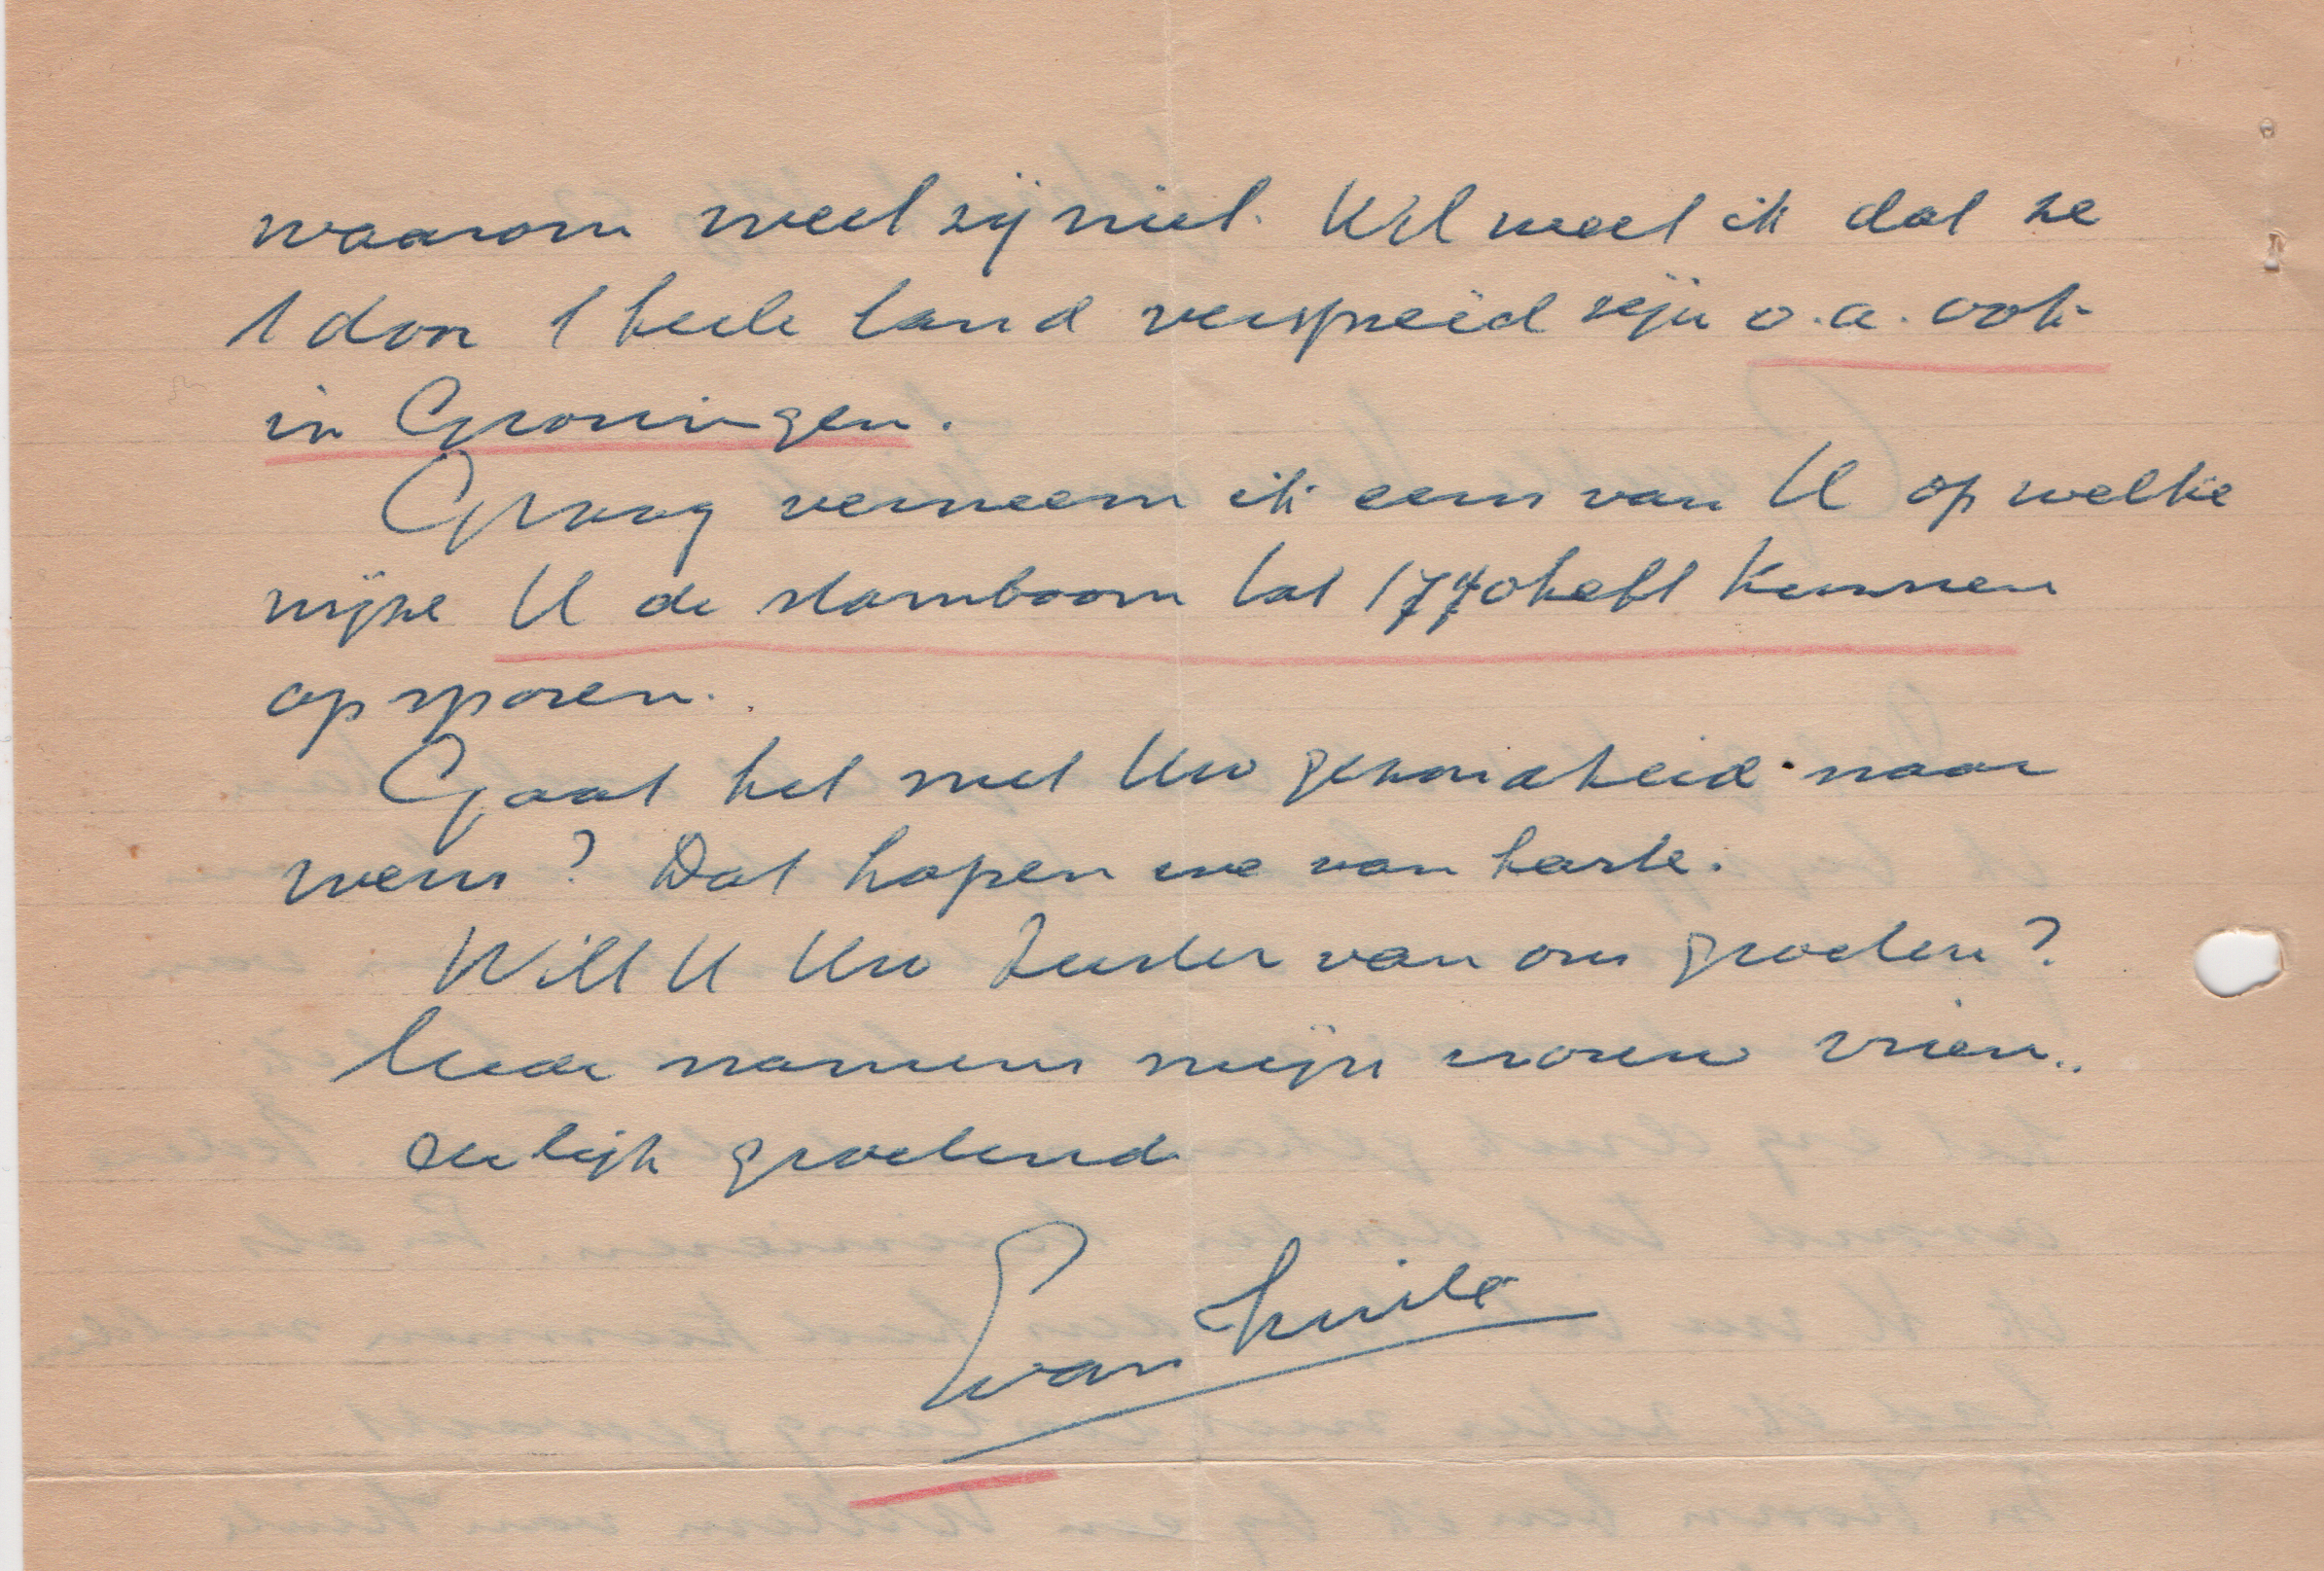 waarom weet zij niet. Wel weet ik dat ze
t door 't heele land verspreid zijn o.a. ook
in Groningen.
Graag verneem ik eens van U op welke
wijze U de stamboom tot 1740 hebt kunnen
opsporen.
Gaat het met Uw gezondheid naar
wens? Dat hopen we van harte.
Wilt U Uw Zuster van ons groeten?
mijn vrouw vrien..
delijk groetend
van Huile